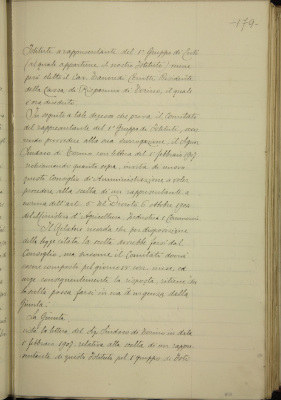 179
Istituto a rappresentante del 1° Gruppo di Enti
(al quale appartiene il nostro Istituto) venne
poi eletto il Cav. Presidente
della Cassa di Risparmio di Torino, il quale
In seguito a tale il Comitato
del rappresentante del 1° Gruppo di Istituti,
provvedere alla sua surrogazione, il Signor
Sindaco di Torino con lettera del 5 febbraio 1907,
quanto sopra, invita di nuovo
questo Consiglio d'Amministrazione a voler
procedere alla scelta di un rappresentante a
norma dell'art. del Decreto 6 ottobre
del Ministro d'Agricoltura Industria e Commercio
Il Relatore ricorda che per disposizione
della legge la scelta dovrebbe farsi dal
Consiglio, ma siccome il Comitato dovrà
essere composto pel giorno corr. mese, ed
urge conseguentemente la risposta, ritiene che
la scelta possa farsi in via d'urgenza dalla
Giunta.
La Giunta
vista la lettera del Sig. Sindaco di Torino in data
5 febbraio 1907, relativa alla scelta di un rappre-
sentante di questo Istituto pel 1° gruppo di